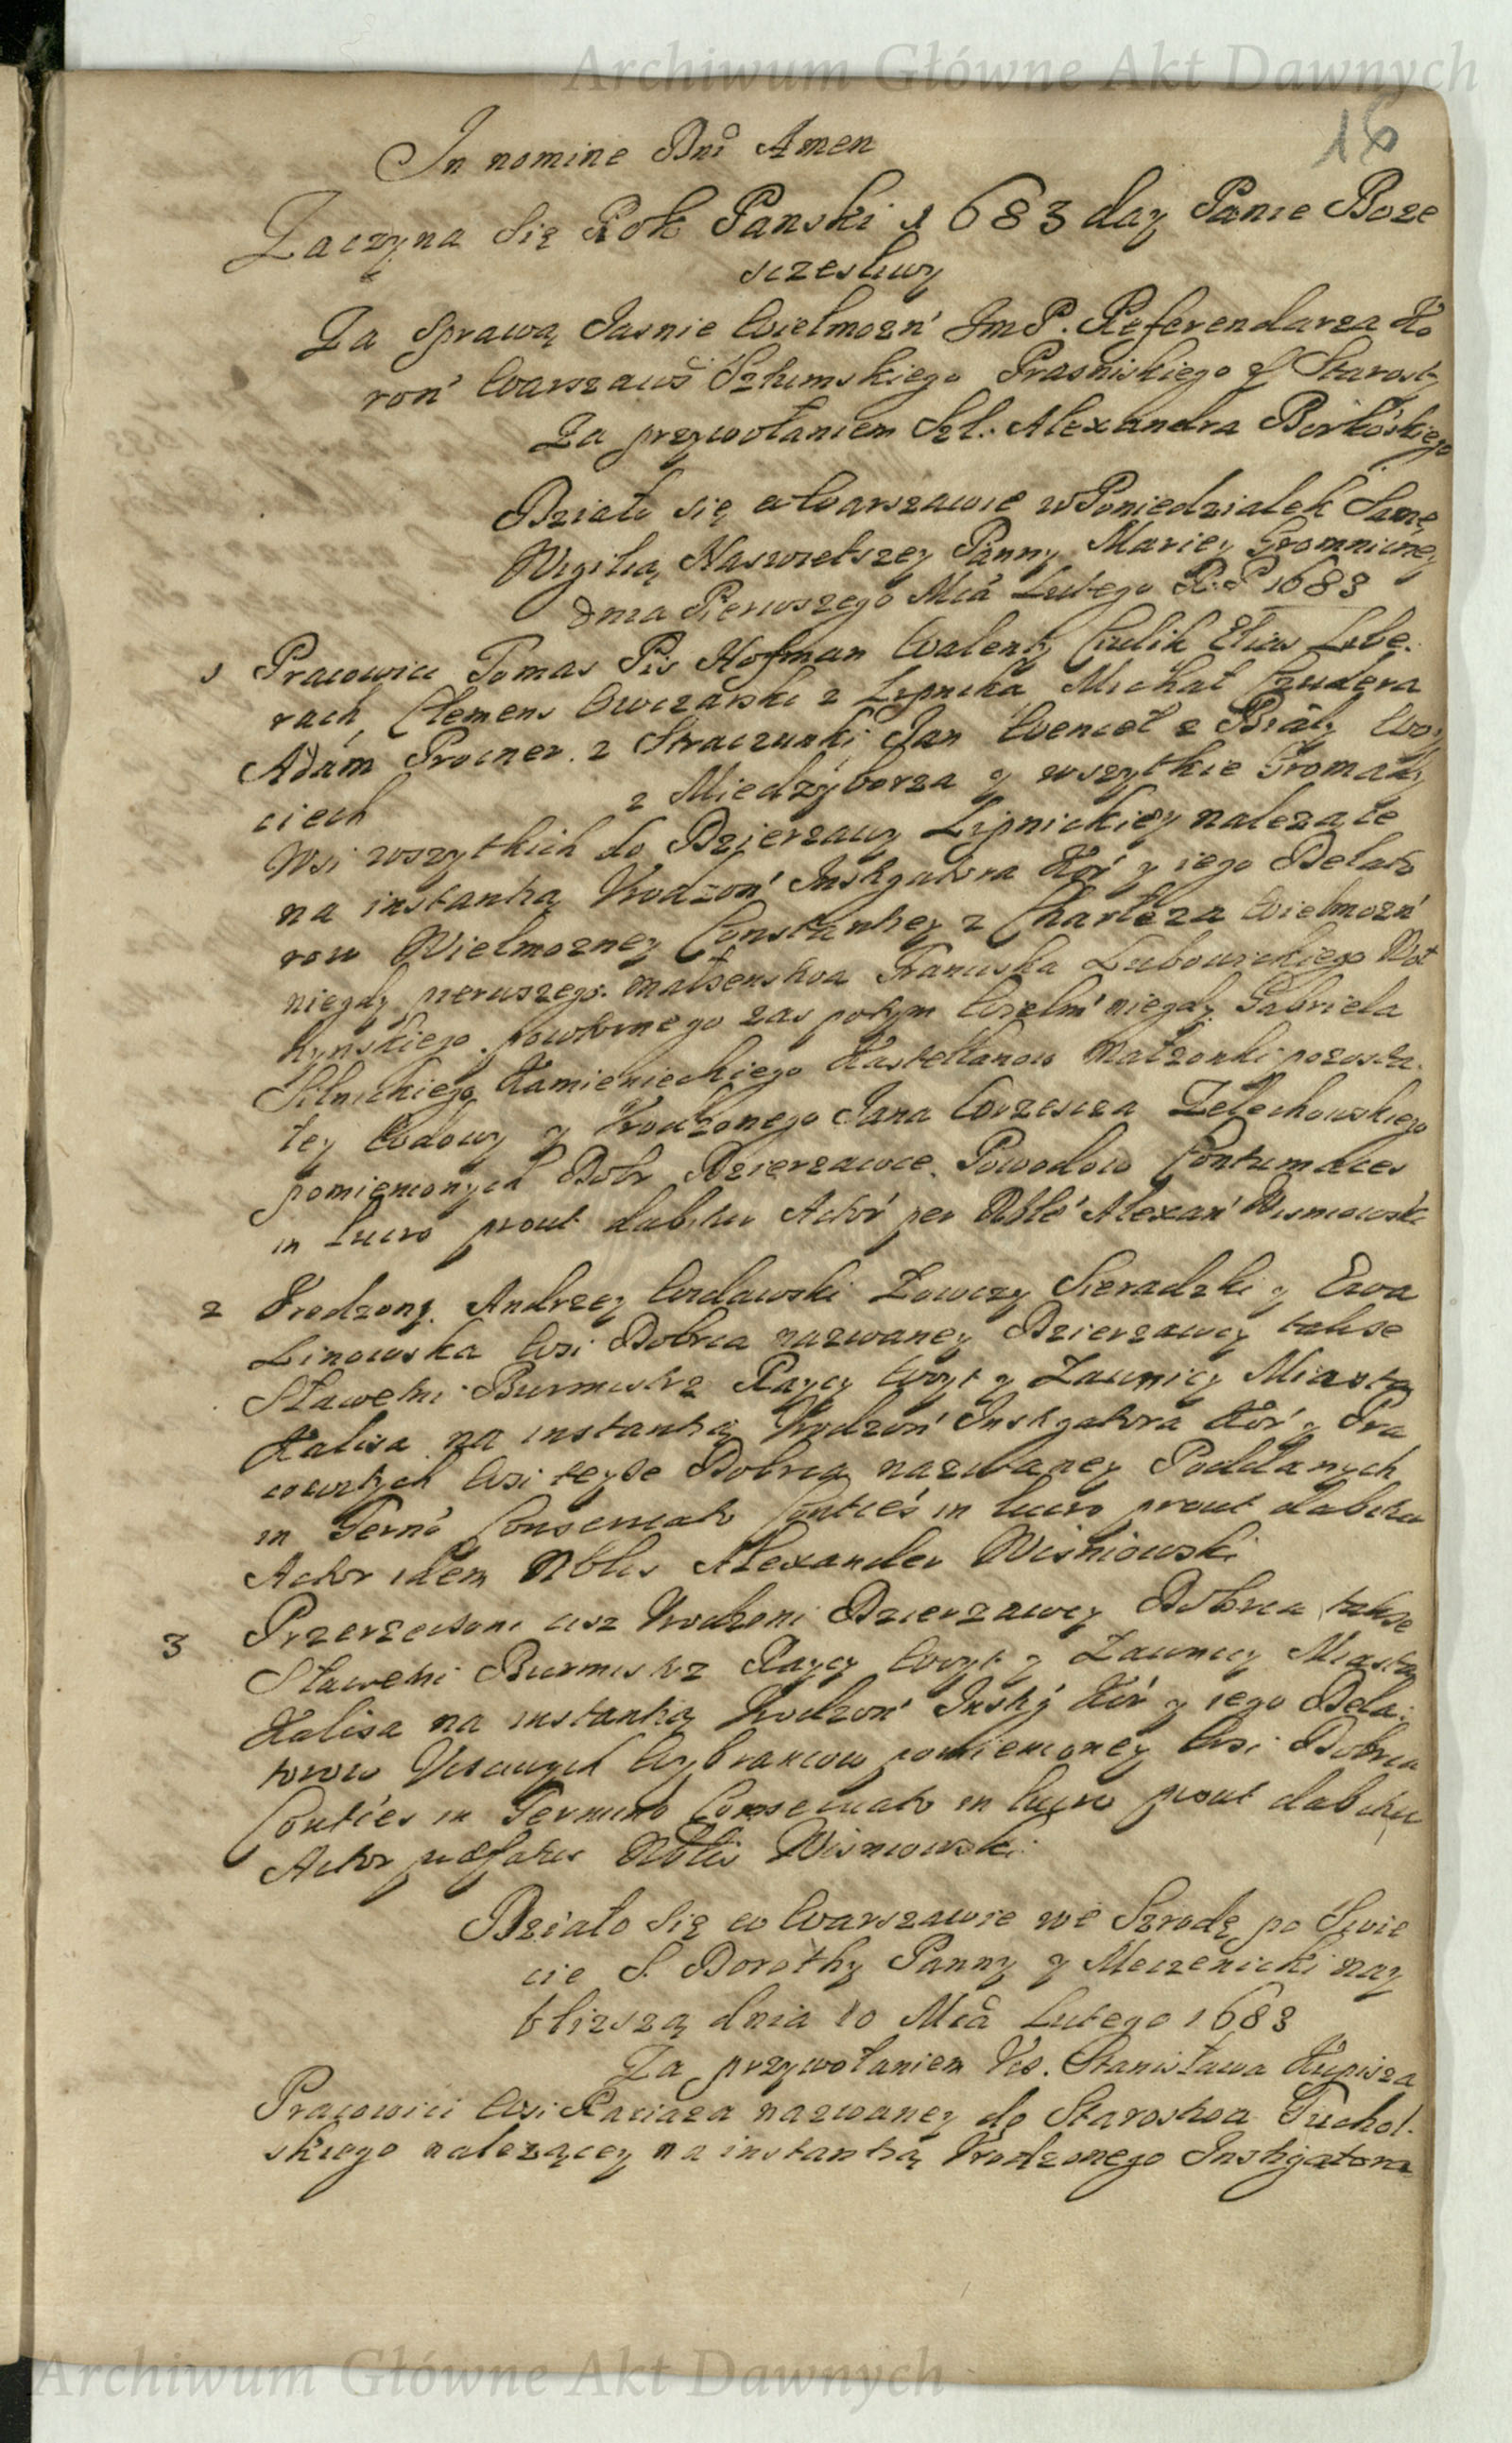 Archiwum Główne Akt Dawnych
16
In nomine Dni Amen
Zaczyna Się Rok Panski 1683 day Panie Boze
sczesliwy
Za Sprawą Jasnie Wielmozn' JmP. Referendarza Ko
ron' Warszaws Sztumskiego Prasniskiego &c Starosty
Za przywołaniem Szl: Alexandra Borkoskiego
Działo się w Warszawie w Poniedziałek Samę
Wigilią Naswietszey Panny Mariey Gromniczney
dnia Pierwszego Mca Lutego R.P 1683
1 Pracowici Tomas Pis Hofman Walenty Culik Elias Lube:
rach, Clemens Owczarski z Lipnika Michał Czudera
Adam Procner z Straczunki Jan Wencel z Biały Woy
ciech z Miedzyborza y wszytkie Gromady
Wsi wszytkich do Dzierzawy Lipnickiey nalezące
na instantią Urodzon' Instigatora Kor' y iego Delato
row Wielmozney Constantiey z Charłeza Wielmozn'
niegdy pierwszego małzenstwa Franciska Lubowickiego Wol
hynskiego powtornego zas potym Wielm' niegdy Gabriela
Silnickiego Kamienieckiego Kastellanow Małzonki pozosta:
łey Wdowy y Urodzonego Jana Wrzescza Zelechowskiego
pomienionych Dobr Dzierzawce Powodow Contumaces
in Lucro prout dabitur Actor' per Nble' Alexan' Wisniowski
2 Urodzony Andrzey Wydawski Łowczy Sieradzki y Ewa
Linowska Wsi Dobrca nazwaney Dzierzawcy takse
Sławetni Burmistrz Raycy Woyt y Ławnicy Miasta
Kalisa na instantią Urodzon' Instigatora Kor' y Pra
cowitych Wsi teyze Dobrca nazwaney Poddanych
in Term'o Conservato Cont'es in lucro prout dabitur
Actor idem Nblis Alexander Wisniowski
3 Przerzeczoni cisz Urodzeni Dzierzawcy Dobrca takse
Sławetni Burmistrz Raycy Woyt y Ławnicy Miasta
Kalisa na instantią Urodzon' Instig' Kor' y iego Dela:
torow Uczciwych Wybrancow pomienioney Wsi Dobrca
Conti'es in Termino Conservato in lucro prout dabitur
Actor praefatus Nblis Wisniowski
Działo Się w Warszawie we Srzodę po Swie
cie S. Dorothy Panny y Meczenicki nay
blizszą dnia 10 Mca Lutego 1683
Za przywołaniem Ucs. Stanisława Kupisza
Pracowici Wsi Raciąza nazwaney do Starostwa Tuchol:
skiego nalezącey na instantią Urodzonego Instigatora
Archiwum Główne Akt Dawnych